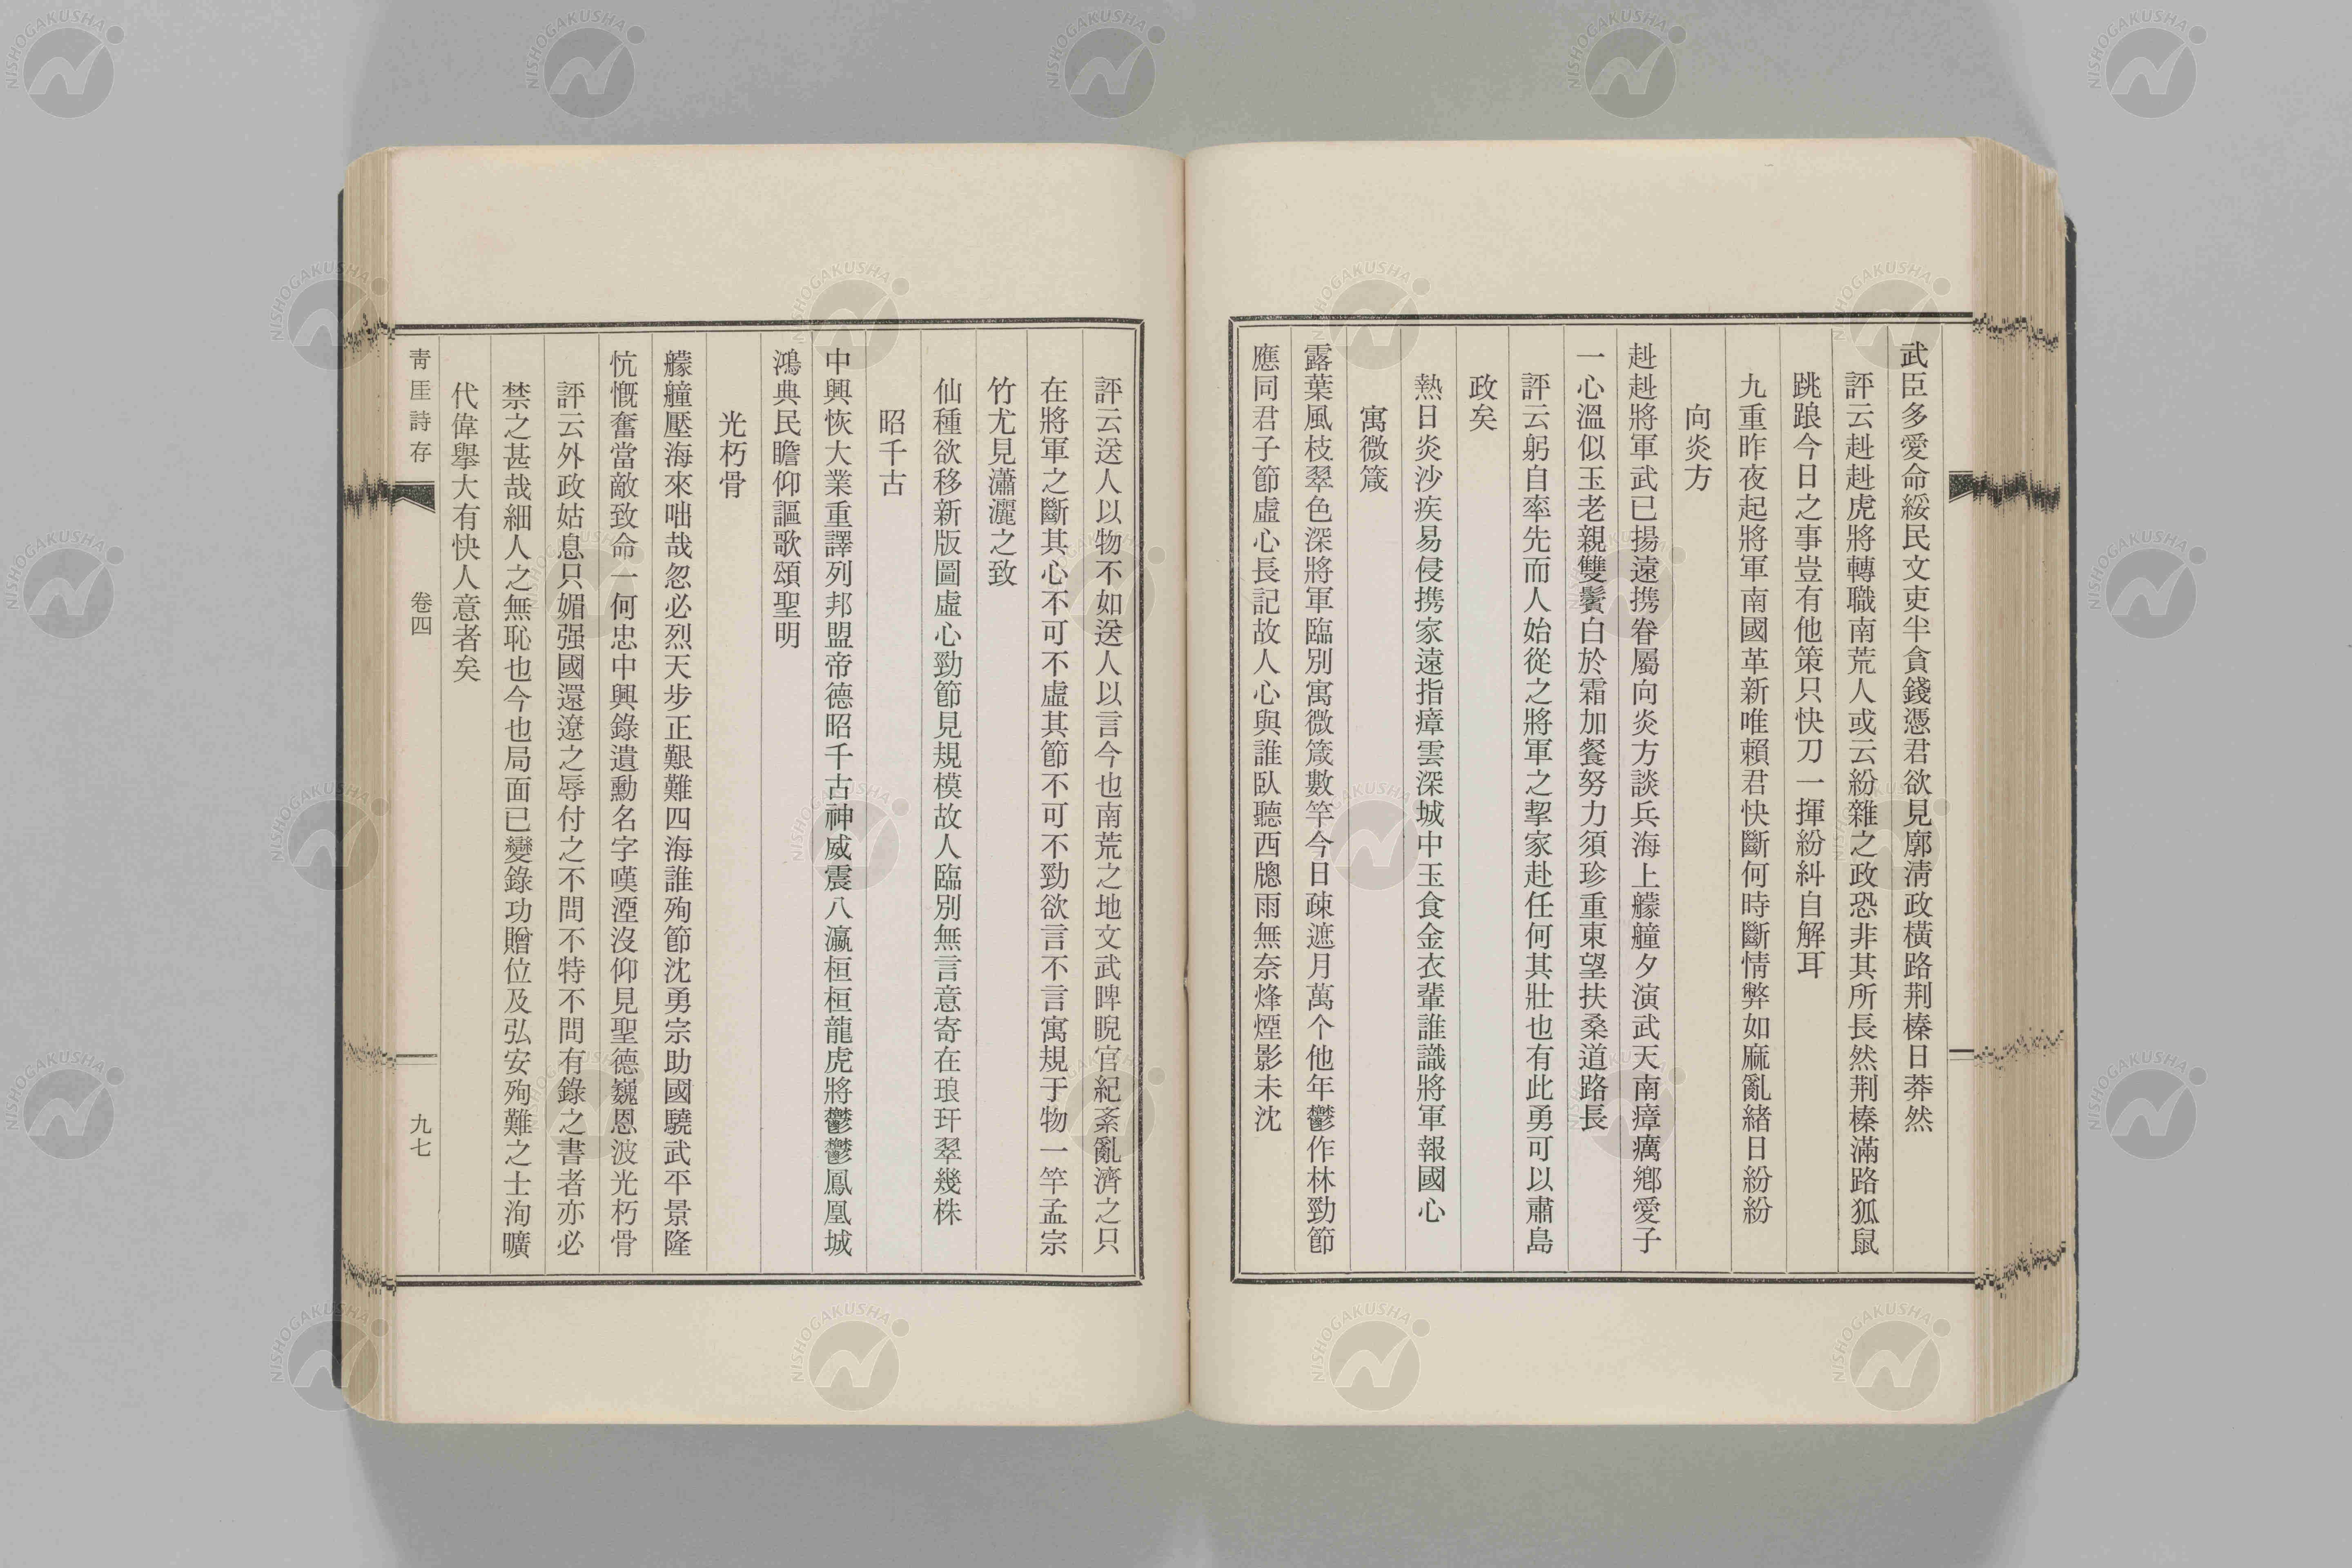 武臣多愛命綏民文吏半貪錢憑君欲見廓淸政橫路荆榛日莽然
評云赳赳虎將轉職南荒人或云紛雜之政恐非其所長然荆榛滿路狐鼠
跳踉今日之事豈有他策只快刀一揮紛糾自解耳
九重昨夜起將軍南國革新唯賴君快斷何時斷情弊如麻亂緖日紛紛
向炎方
赳赳將軍武已揚遠携眷屬向炎方談兵海上艨艟夕演武天南瘴癘鄕愛子
一心溫似玉老親雙鬢白於霜加餐努力須珍重東望扶桑道路長
評云躬自率先而人始從之將軍之挈家赴任何其壯也有此勇可以肅島
政矣
熱日炎沙疾易侵携家遠指瘴雲深城中玉食金衣輩誰識將軍報國心
寓微箴
露葉風枝翠色深將軍臨別寓微箴數竿今日疎遮月萬个他年鬱作林勁節
應同君子節虛心長記故人心與誰臥聽西牕雨無奈烽煙影未沈
評云送人以物不如送人以言今也南荒之地文武睥睨官紀紊亂濟之只
在將軍之斷其心不可不虛其節不可不勁欲言不言寓規于物一竿孟宗
竹尤見瀟灑之致
仙種欲移新版圖虛心勁節見規模故人臨別無言意寄在琅玕翠幾株
昭千古
中興恢大業重譯列邦盟帝德昭千古神威震八瀛桓桓龍虎將鬱鬱鳳凰城
鴻典民瞻仰謳歌頌聖明
光朽骨
艨艟壓海來咄哉忽必烈天步正艱難四海誰殉節沈勇宗助國驍武平景隆
忼慨奮當敵致命一何忠中興錄遺勳名字嘆湮沒仰見聖德巍恩波光朽骨
評云外政姑息只媚强國還遼之辱付之不問不特不問有錄之書者亦必
禁之甚哉細人之無恥也今也局面已變錄功贈位及弘安殉難之士洵曠
代偉擧大有快人意者矣
靑厓詩存
卷四
九七
NISHOGAKUSHA